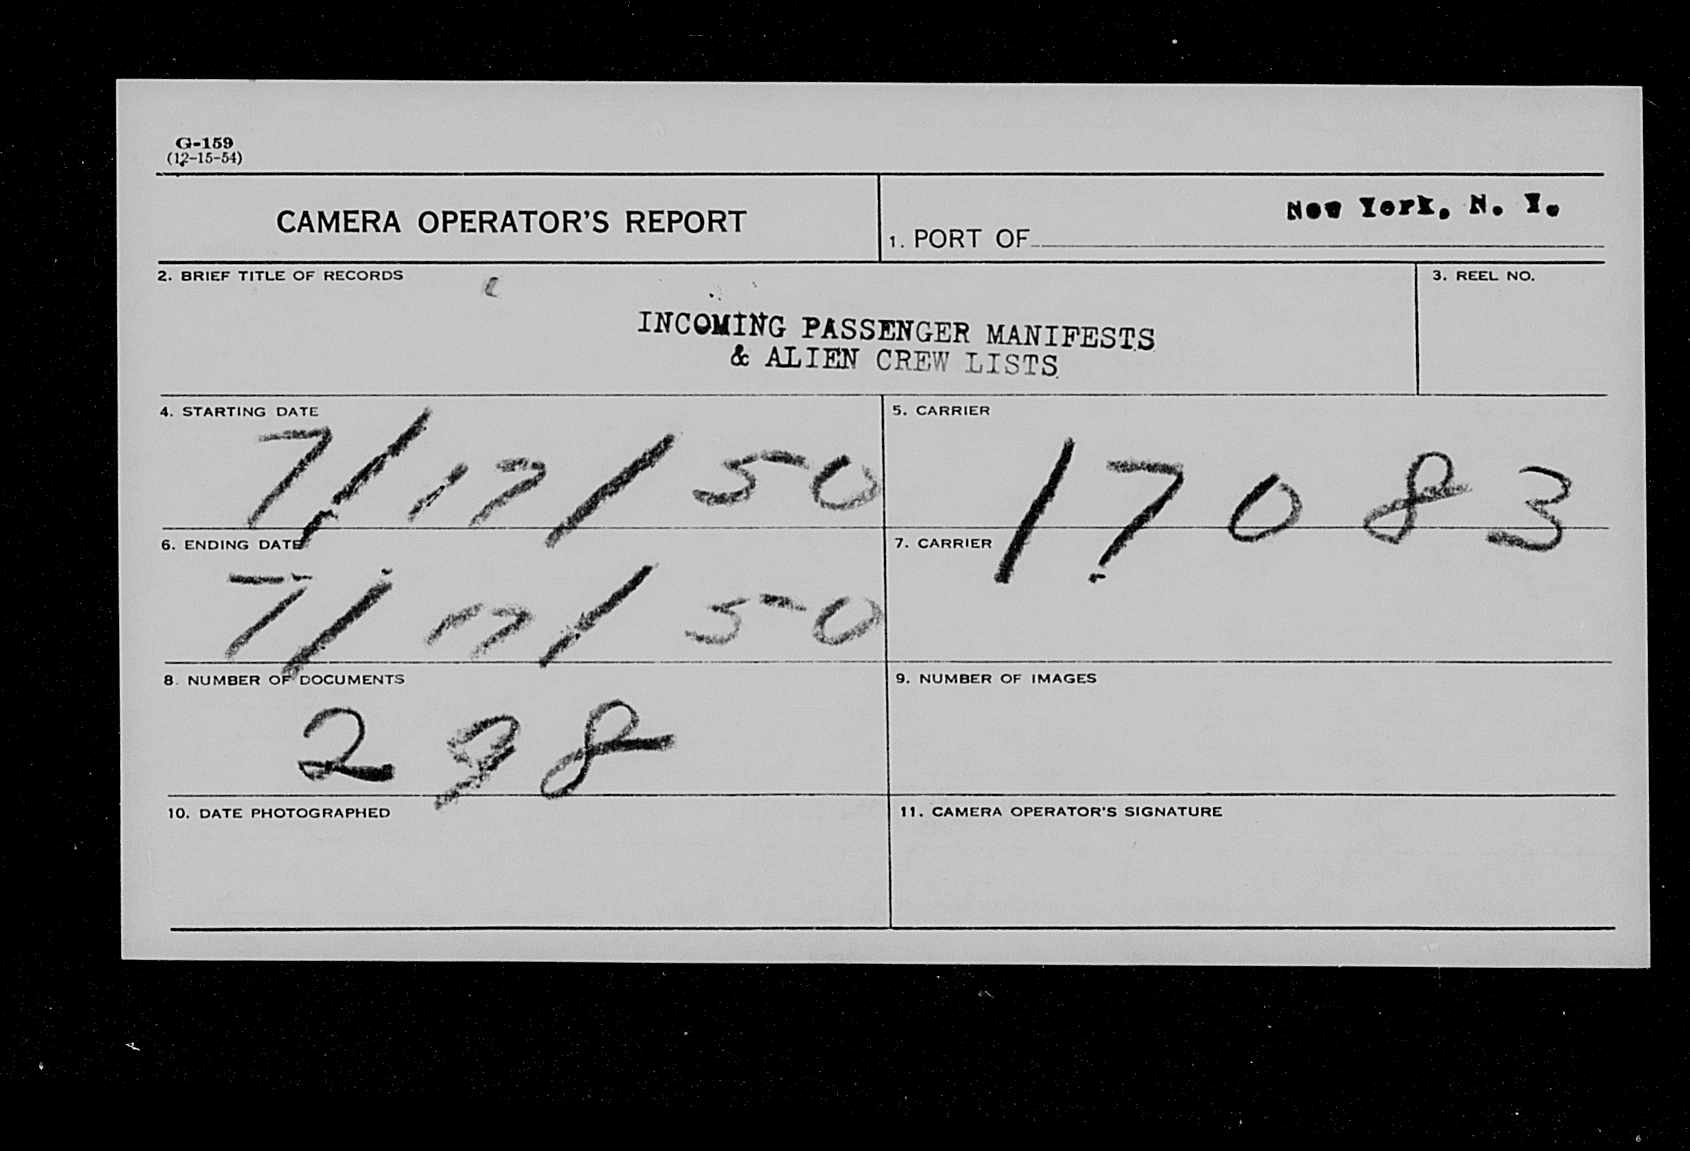 G-159
(12-15-54)
CAMERA OPERATOR'S REPORT
1. PORT OF New York, N. Y.
2. BRIEF TITLE OF RECORDS
INCOMING PASSENGER MANIFESTS
& ALIEN CREW LISTS
3. REEL NO.
4. STARTING DATE
7/17/50
5. CARRIER
17083
6. ENDING DATE
7/17/50
7. CARRIER
8. NUMBER OF DOCUMENTS
9. NUMBER OF IMAGES
10. DATE PHOTOGRAPHED
11. CAMERA OPERATOR'S SIGNATURE